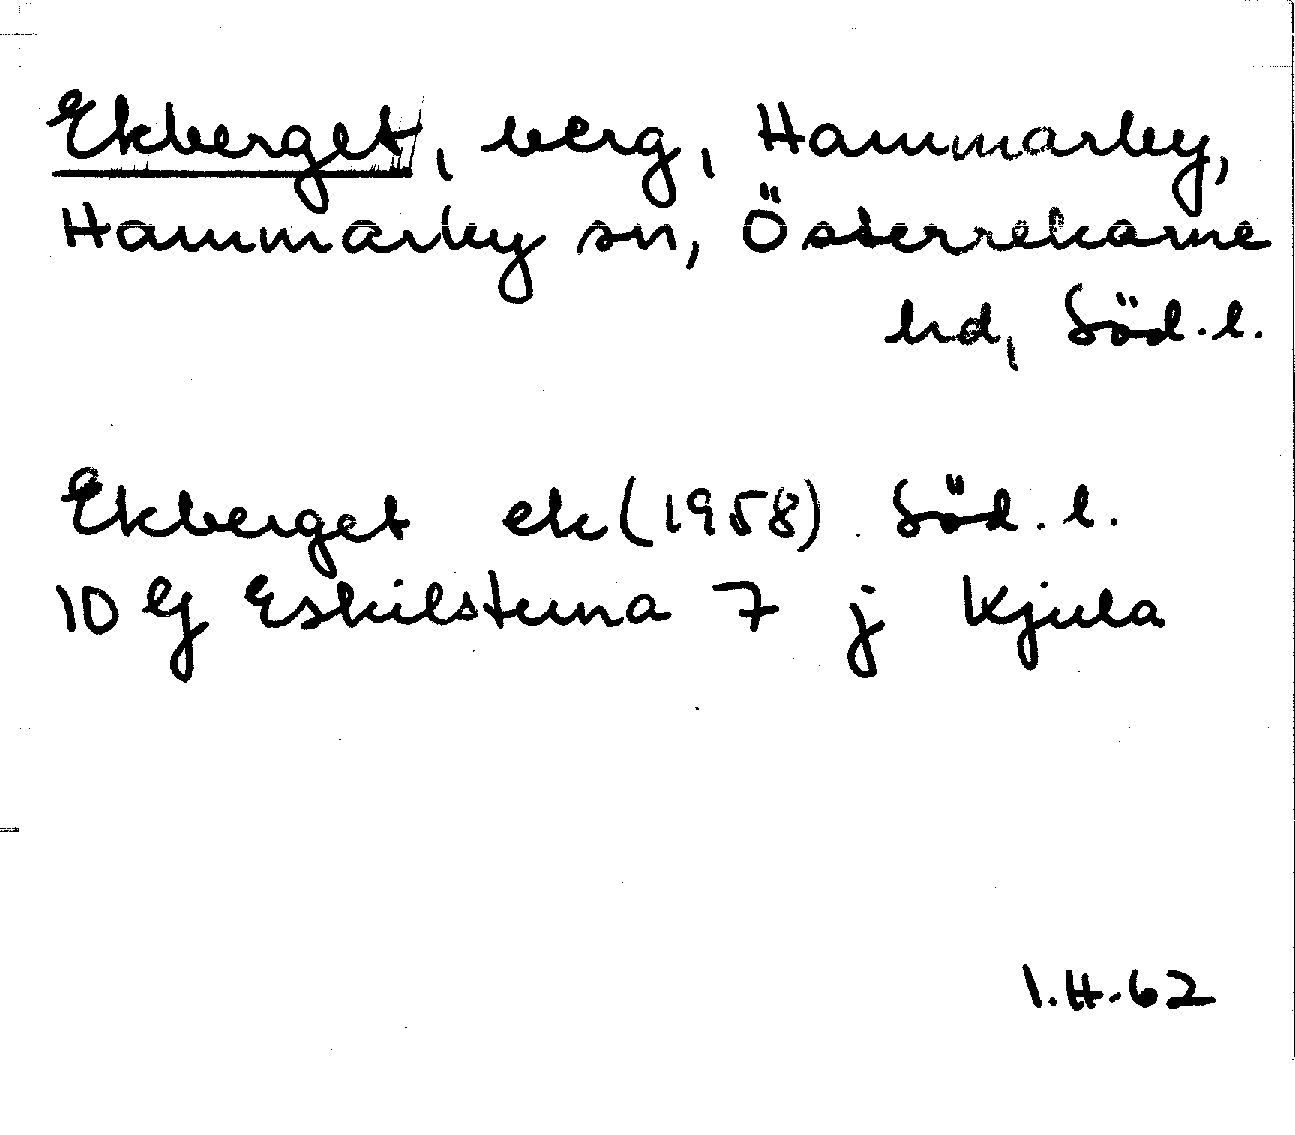 Ekberget, berg, Hammarby,
Hammarby sn, Österrekarne
hd, Söd.l.
Ekberget ek (1958) Söd.l.
10 G Eskilstuna 7 j Kjula
I.H.62